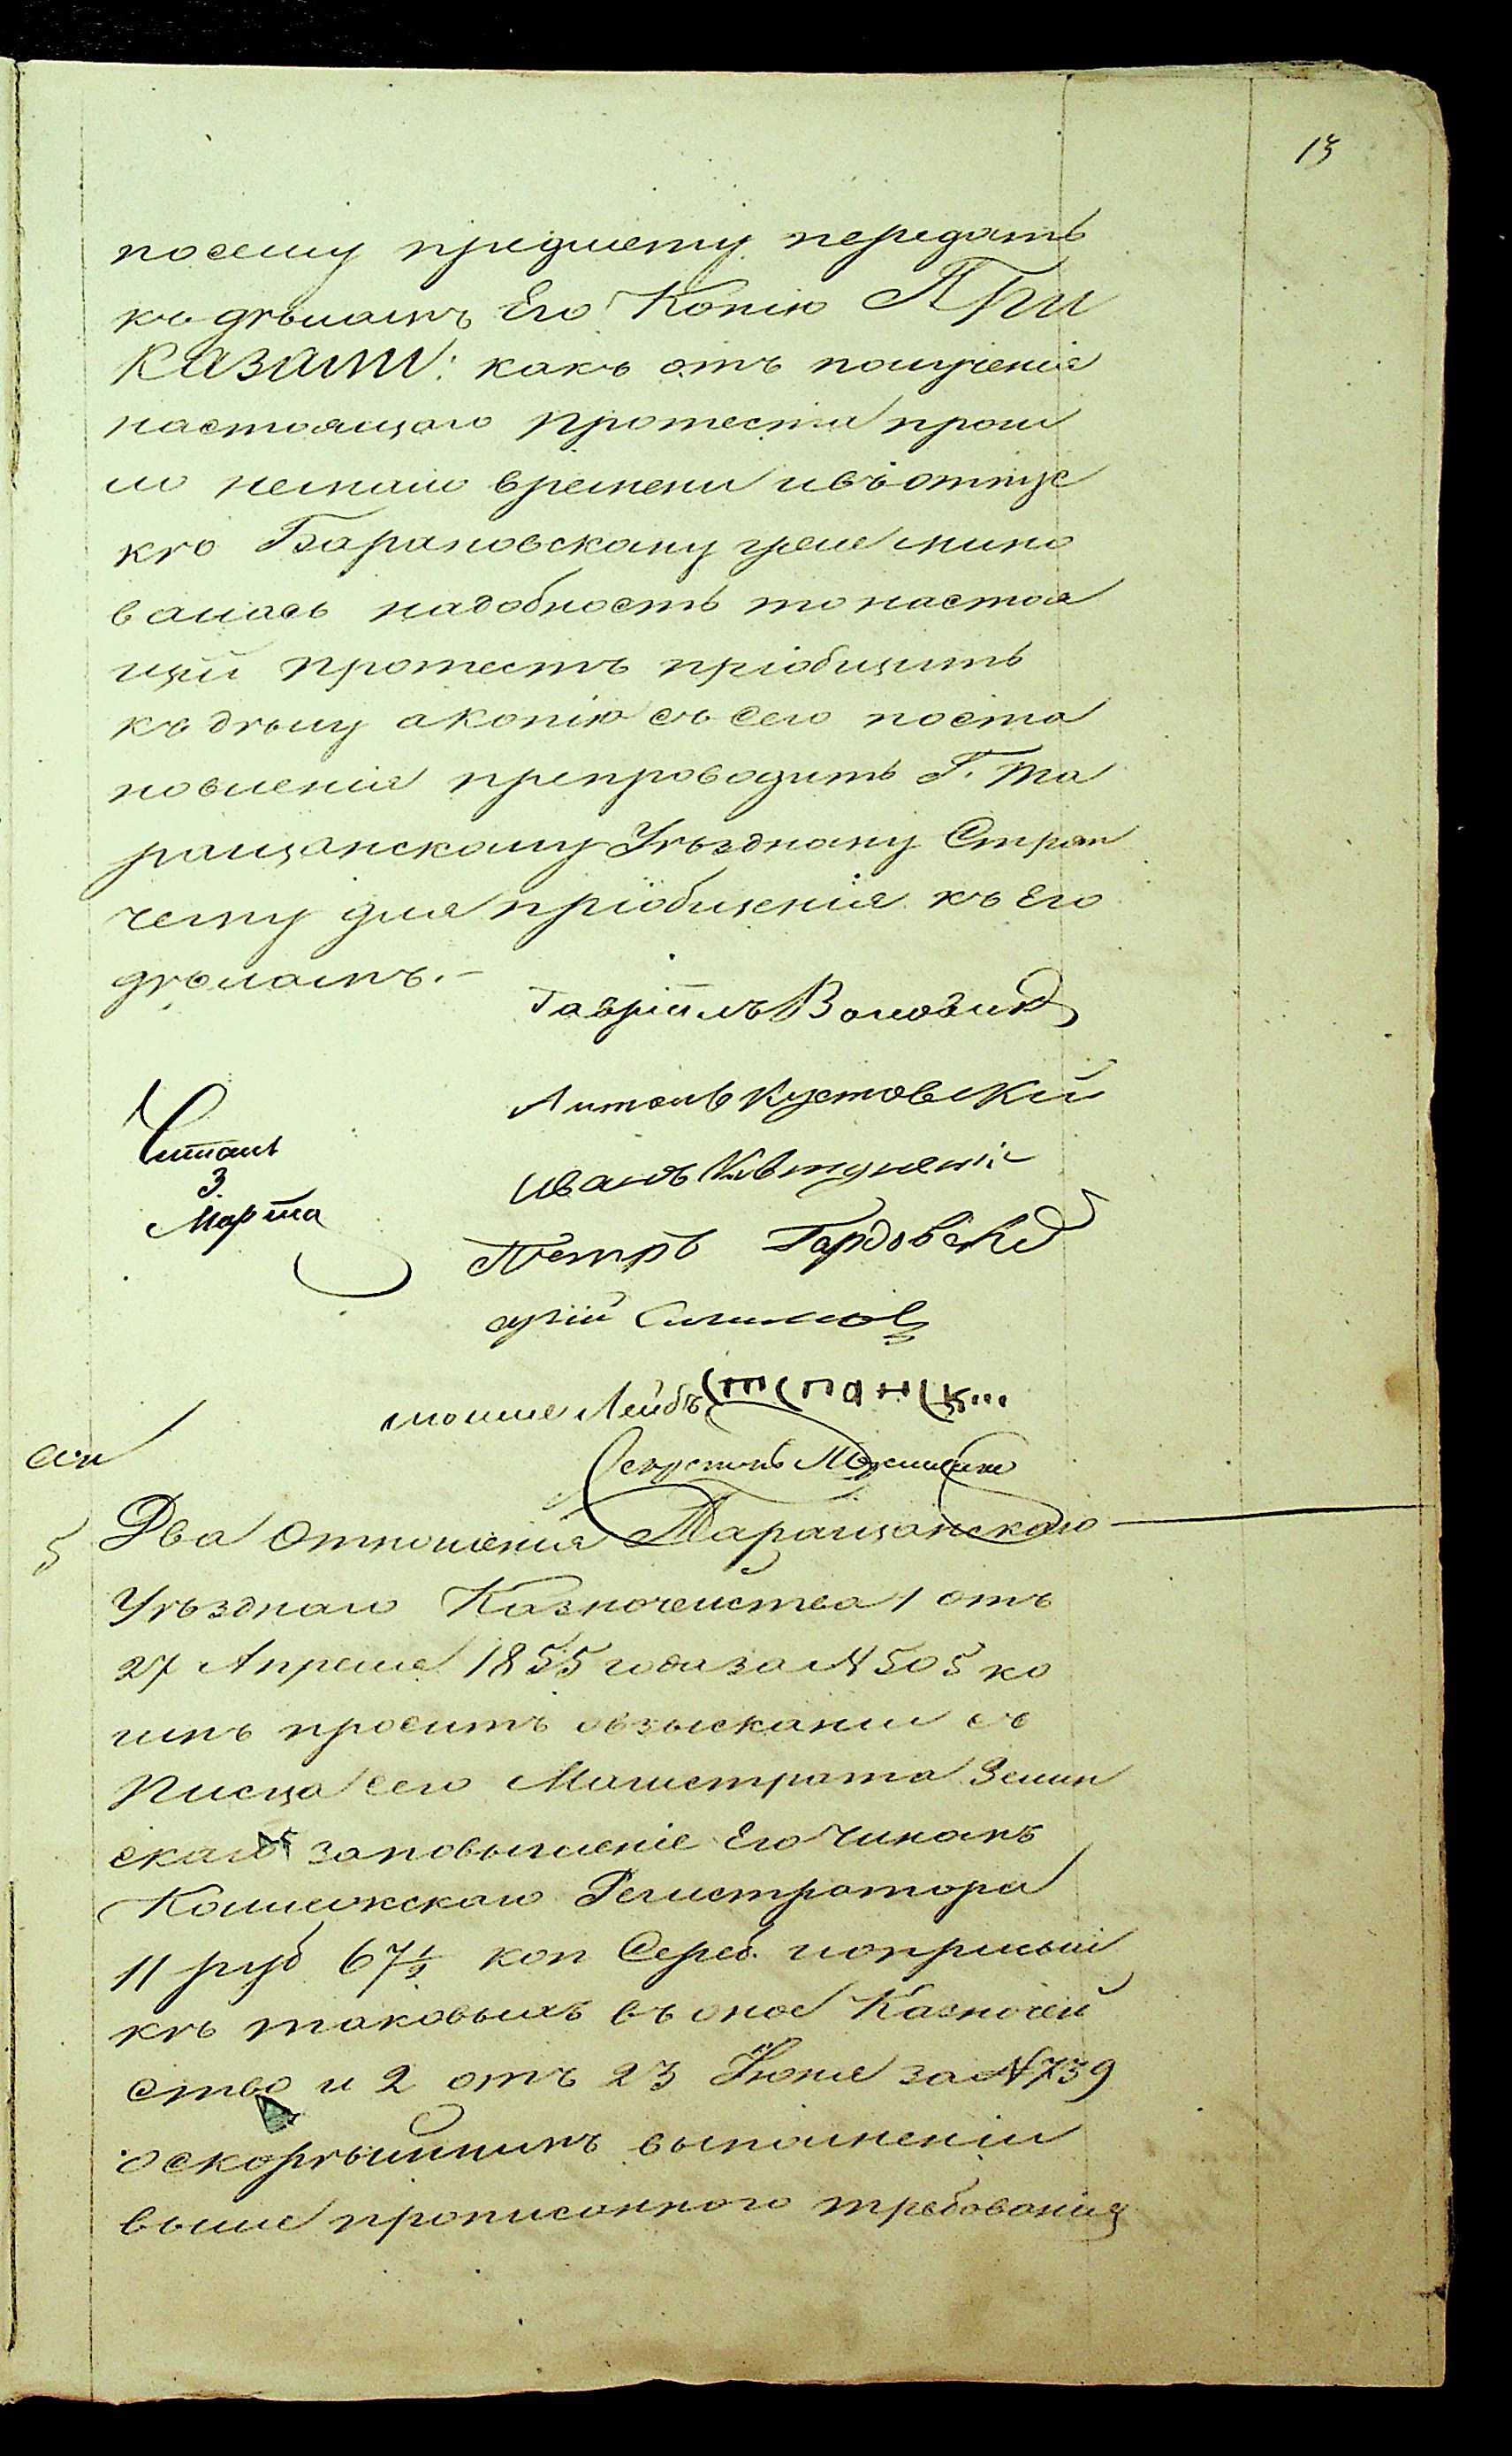 13
посему предмету передать
къ дѣламъ Его Копію При
казали: какъ отъ полученія
настоящаго протеста прош
ло немало времени и въ отпус
кѣ Барановскому уже мино
валась надобность то настоя
щій протестъ пріобщить
къ дѣлу а копію съ сего поста
новленія препроводить Г. Та
ращанскому Уѣздному Стряп
чему для пріобщенія къ Его
дѣламъ.-
Гавріилъ
Антонъ Кустовскій
Читалъ
3
Марта
Иванъ
Петръ Гардовскій
Мошке Лейбъ
Секретарь
Два Отношенія Таращанскаго
5
Уѣзднаго Казначейства 1 отъ
27 Апреля 1855 года за № 505 ко
имъ проситъ о взысканіи съ
Писца сего Магистрата Зелин
скаго за повышеніе Его Чиномъ
Коллежскаго Регистратора
11 руб 67½ коп Сереб. и о присыл
кѣ таковыхъ въ оное Казначей
ство и 2 отъ 23 Іюня за № 739
о скорѣйшимъ выполненіи
выше прописанного требованія